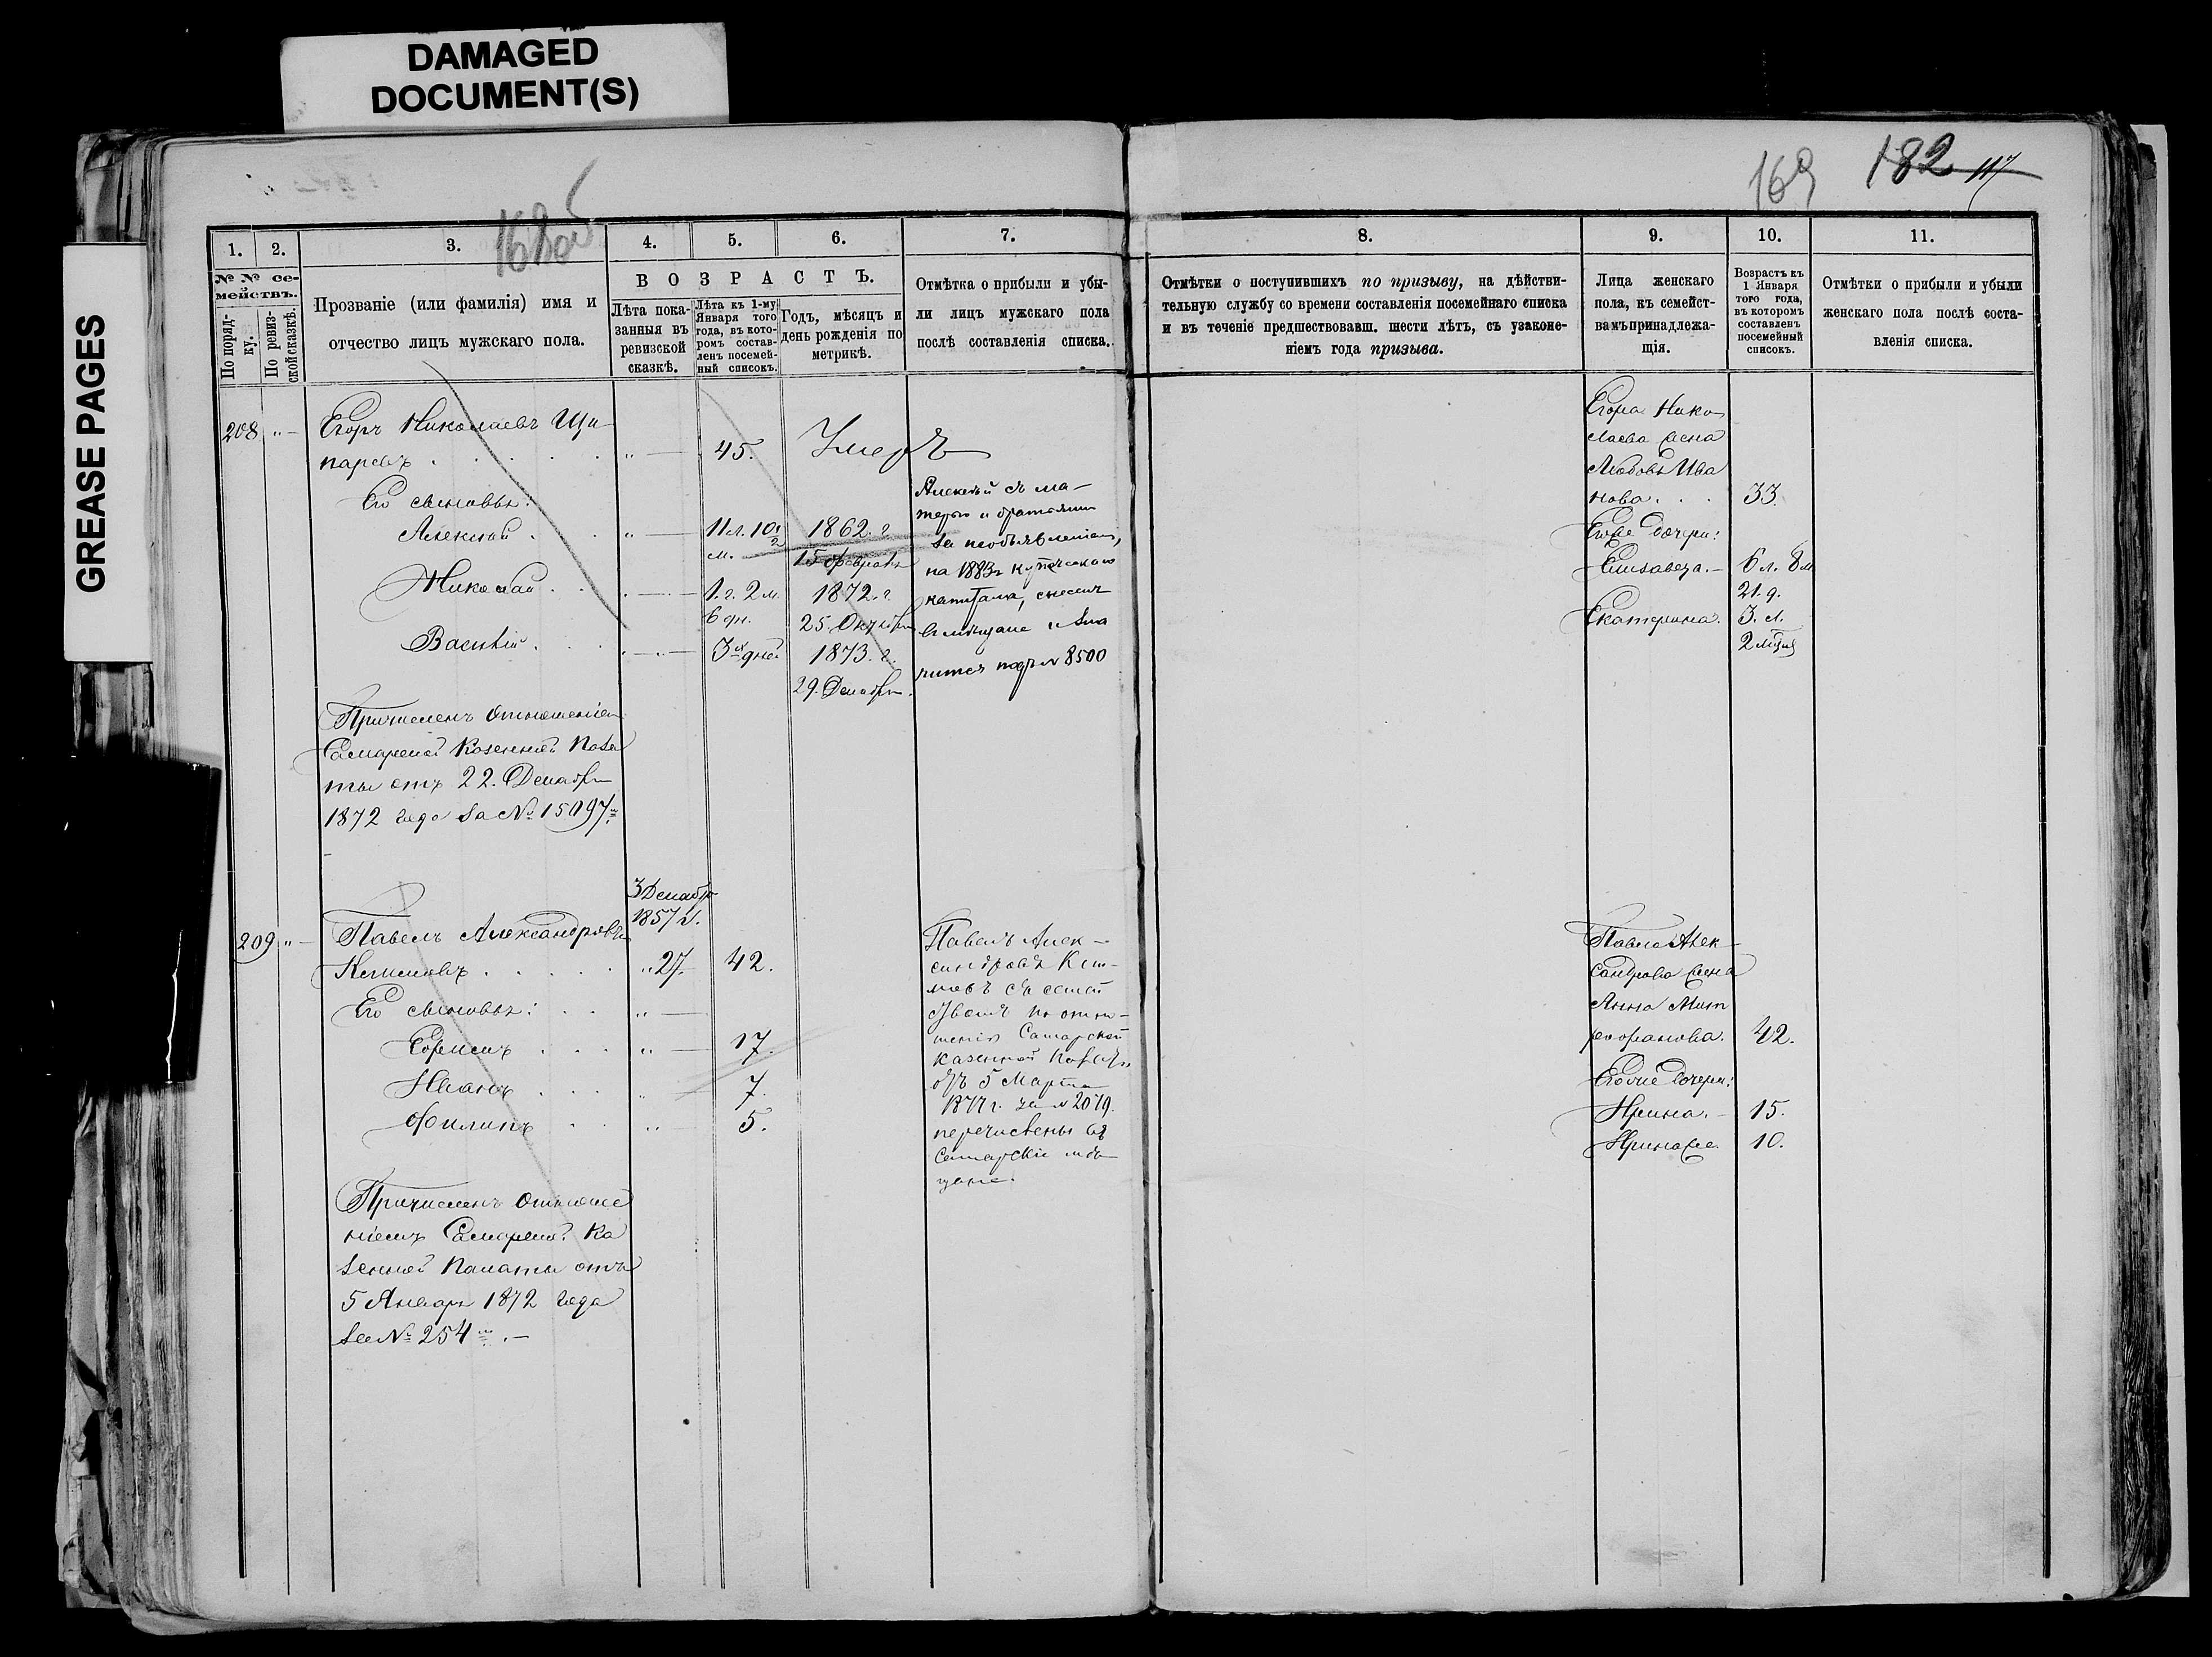 DAMAGED
DOCUMENT(S)
GREASE PAGES
168об
169 182 117
1. 2. 3. 4. 5. 6. 7. 8. 9. 10. 11.
№ № се-
мействъ.
По поряд-
ку.
По ревиз-
ской сказкѣ.
Прозваніе (или фамилія) имя и
отчество лицъ мужскаго пола.
ВОЗРАСТЪ.
Лѣта пока-
занныя въ
ревизской
сказкѣ.
Лѣта къ 1-му
Января того
года, въ кото-
ромъ состав-
ленъ посемей-
ный списокъ.
Годъ, мѣсяцъ и
день рожденія по
метрикѣ.
Отмѣтка о прибыли и убы-
ли лицъ мужскаго пола
послѣ составленія списка.
Отмѣтки о поступившихъ по призыву, на дѣйстви-
тельную службу со времени составленія посемейнаго списка
и въ теченіе предшествовавш. шести лѣтъ, съ узаконе-
ніемъ года призыва.
Лица женскаго
пола, къ семейст-
вамъ принадлежа-
щія.
Возрастъ къ
1 Января
того года,
въ которомъ
составленъ
посемейный
списокъ.
Отмѣтки о прибыли и убыли
женскаго пола послѣ соста-
вленія списка.
208 Егоръ Николаевъ Щи-
паревъ 45. Умеръ
Его сыновья:
Алексѣй 11 л. 10 1/2 м. 1862. г.
15 февраля
Николай 1. г. 2 м. 6 дн. 1872. г.
25. Октября
Василій 3хъ дней 1873. г.
29. Декабря
Алексѣй съ ма-
терью и братьями
за необъявленіемъ,
на 1883 г. купеческаго
капитала,
въ мѣщане и зна
чится подъ № 8500
Егора Нико
лаева жена
Любовь Ива
нова 33.
Его дочери:
Елизавета. 6 л. 8 м
21. д.
Екатерина. 3. л.
2 мѣсяц
Причисленъ отношеніем
Самарской Казенной Пала
ты отъ 22. Декабря
1872 года за № 15097
209 Павелъ Александровъ
3 Декабр
1857 г.
27. 42.
Его сыновья:
17.
Иванъ 7.
Филипъ 5.
Павелъ Алек-
сандровъ
съ семей
ствомъ по отно-
шенію Самарской
казенной Палаты
отъ 5 Марта
1877 г. за № 2079.
перечислены въ
Самарскіе мѣ
щане.
Павла Алек-
сандрова жена
Анна Мит
рофанова. 42.
Его же дочери:
Ирина. 15.
10.
Причисленъ отноше
ніемъ Самарской Ка
зенной Палаты отъ
5 Января 1872 года
за № 254